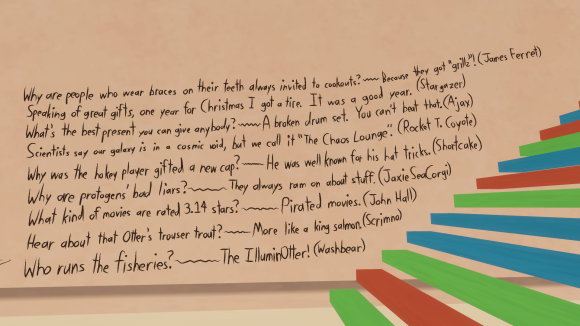 Why are people who wear braces on their teeth always invited to cookouts?~~Because they got "grillz"! (James Ferret)
Speaking of great gifts, one year for Christmas I got a tire. It was a good year. (Stargazer)
What's the best present you can give anybody?~~A broken drum set. You can't beat that. (Ajax)
Scientists say our galaxy is in a cosmic void, but we call it "The Chaos Lounge". (Rocket T. Coyote)
Why was the hokey player gifted a new cap?~~He was well known for his hat tricks. (Shortcake)
Why are protogens' bad liars?~~They always ram on about stuff. (JaxieSeaCorgi)
What kind of movies are rated 3.14 stars?~~Pirated movies. (John Hall)
Hear about that Otter's trouser trout?~~More like a king salmon. (Scrimno)
Who runs the fisheries?~~The IlluminOtter! (Washbear)